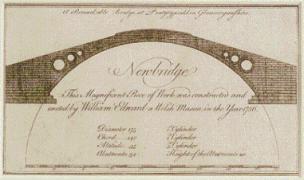 A Remarkable Bridge at Pontypridd in Glamorganshire.
Newbridge
This Magnificent Piece of Work was constructed and
erected by William Edward a Welsh Mason, in the Year 1756
Diameter 175 Cylinder
Chord Cylinder
Altitude Cylinder
Height of the